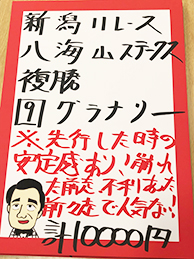 新潟11レース
八海山ステークス
複勝
9 グラナリー
※先行した時の
安定感あり、崩れ
た前走不利あった
前々走で人気な!
計10000円